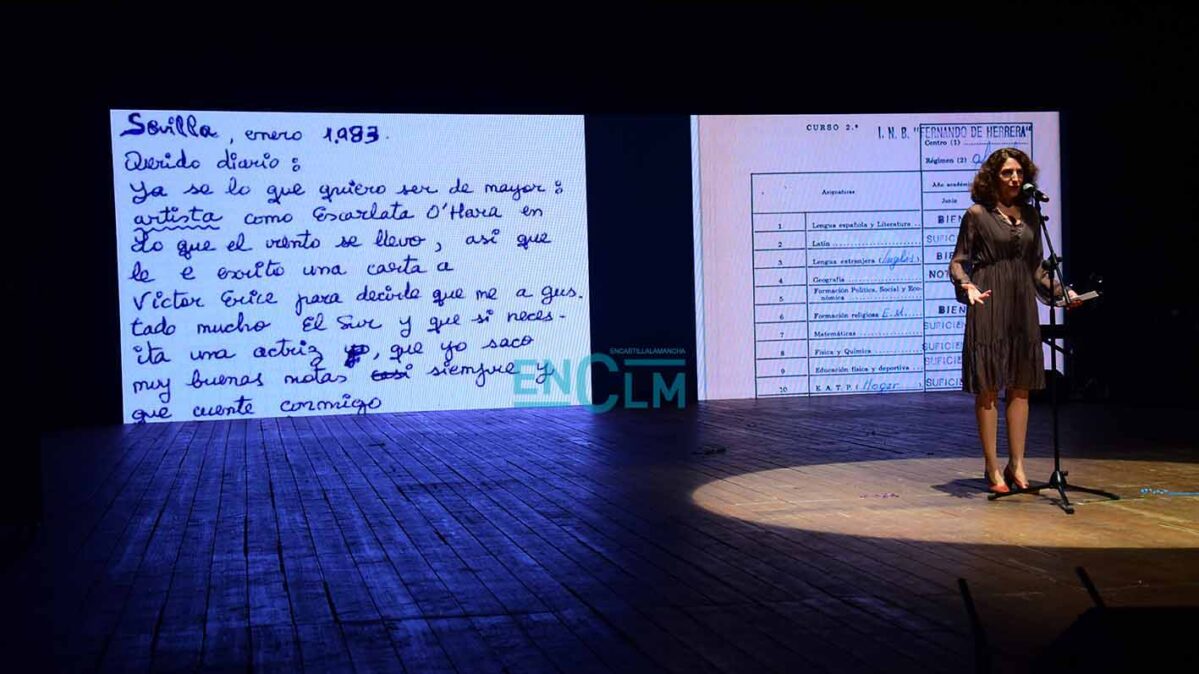 Sevilla, enero 1.983.
Querido diario:
Ya se lo que quiero ser de mayor:
artista como Escarlata O'Hara en
Lo que el viento se llevo, asi que
le e exrito una carta a
Victor Erice para decirle que me a gus.
tado mucho El Sur y que si neces-
ita una actriz, que yo saco
muy buenas notas siempre y
que cuente conmigo
CURSO 2.º
I. N. B. "FERNANDO DE HERRERA"
Centro (1)
Régimen (2)
Asignaturas
Año académi
Junio
1 Lengua española y Literatura BIEN
2 Latín SUFIC
3 Lengua extranjera (Inglés) BIE
4 Geografía NOT
5 Formación Política, Social y Eco-
nómica
6 Formación religiosa E.M. BIEN
7 Matemáticas SUFICIEN
8 Física y Química SUFICIE
9 Educación física y deportiva SUFICIE
10 E. A. T. P. (Hogar) SUFICIE
ENCASTILLALAMANCHA
ENCLM